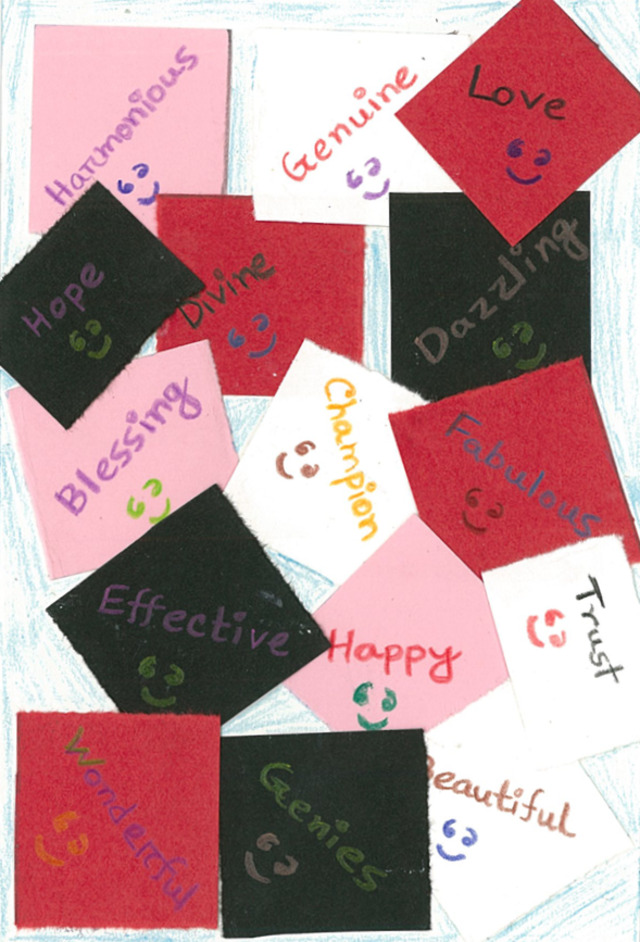 Harmonious
Genuine
Love
Hope
Divine
Dazzling
Blessing
Champion
Fabulous
Effective
Happy
Trust
Wonderful
Genies
Beautiful